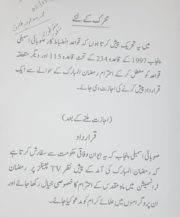 تحریک کے لئے
میں یہ تحریک پیش کرتا ہوں کہ قواعد انضباط کار صوبائی اسمبلی
پنجاب 1997 کے قاعدہ 234 کے تحت قاعدہ 115 اور دیگر متعلقہ
قواعد کو معطل کر کے احترام رمضان المبارک کے حوالے سے ایک
قرارداد پیش کرنے کی اجازت دی جائے۔
(اجازت ملنے کے بعد)
قرارداد
صوبائی اسمبلی پنجاب کا یہ ایوان وفاقی حکومت سے سفارش کرتا ہے
کہ رمضان المبارک کی آمد کے پیش نظر TV چینلز پر رمضان
ٹرانسمیشن میں ماہ مقدس کے احترام کا خصوصی خیال رکھا جائے اور
ان پروگراموں میں علمائے کرام کو مدعو کیا جائے۔